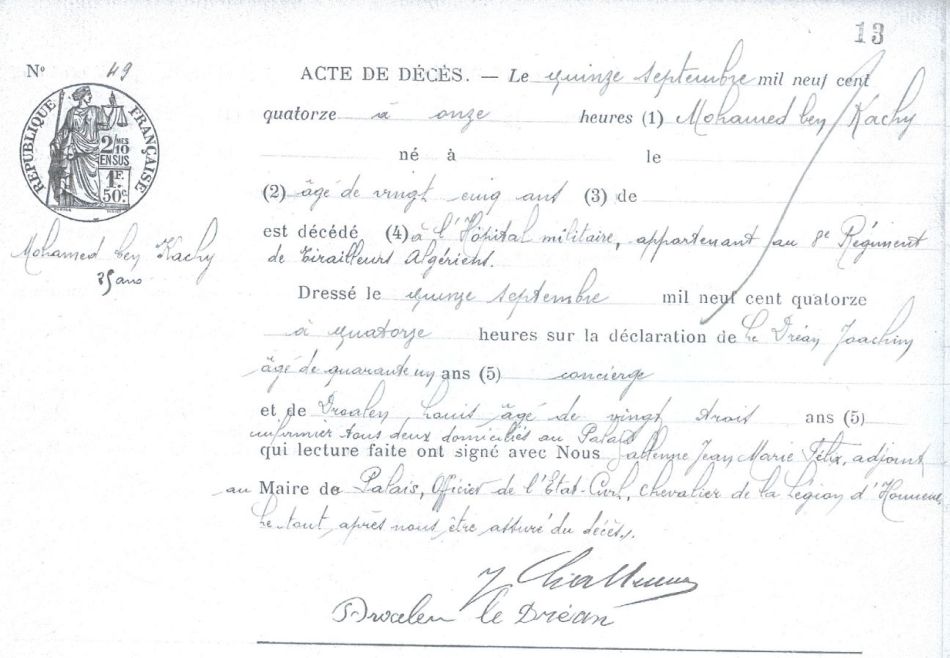 13
Nº 49
RÉPUBLIQUE FRANÇAISE
2/10 MES
EN SUS
1F.
50c.
Mohamed ben Kachy
25 ans
ACTE DE DÉCÈS. — Le quinze septembre mil neuf cent
quatorze à onze heures (1) Mohamed ben Kachy
né à le
(2) âgé de vingt cinq ans (3) de
est décédé (4) à l'Hôpital militaire, appartenant au 8e Régiment
de Tirailleurs Algériens.
Dressé le quinze septembre mil neuf cent quatorze
à quatorze heures sur la déclaration de Le Dréan Joachim
âgé de quarante un ans (5) concierge
et de Droalen, Louis, âgé de vingt trois ans (5)
infirmier tous deux domiciliés au Palais
qui lecture faite ont signé avec Nous Jean Marie Félix, adjoint
au Maire de Palais, Officier de l'Etat-Civil, Chevalier de la Légion d'Honneur,
Le tout, après nous être assuré du décès.
Droalen le Dréan